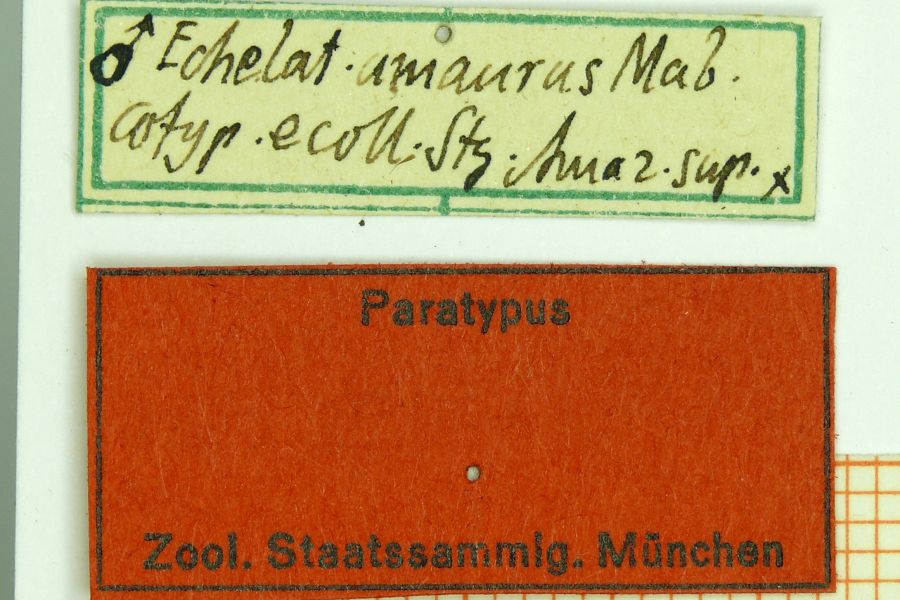 ♂ Echelat. amaurus Mab.
cotyp. e coll. Stg. Amaz. sup. x
Paratypus
Zool. Staatssammlg. München